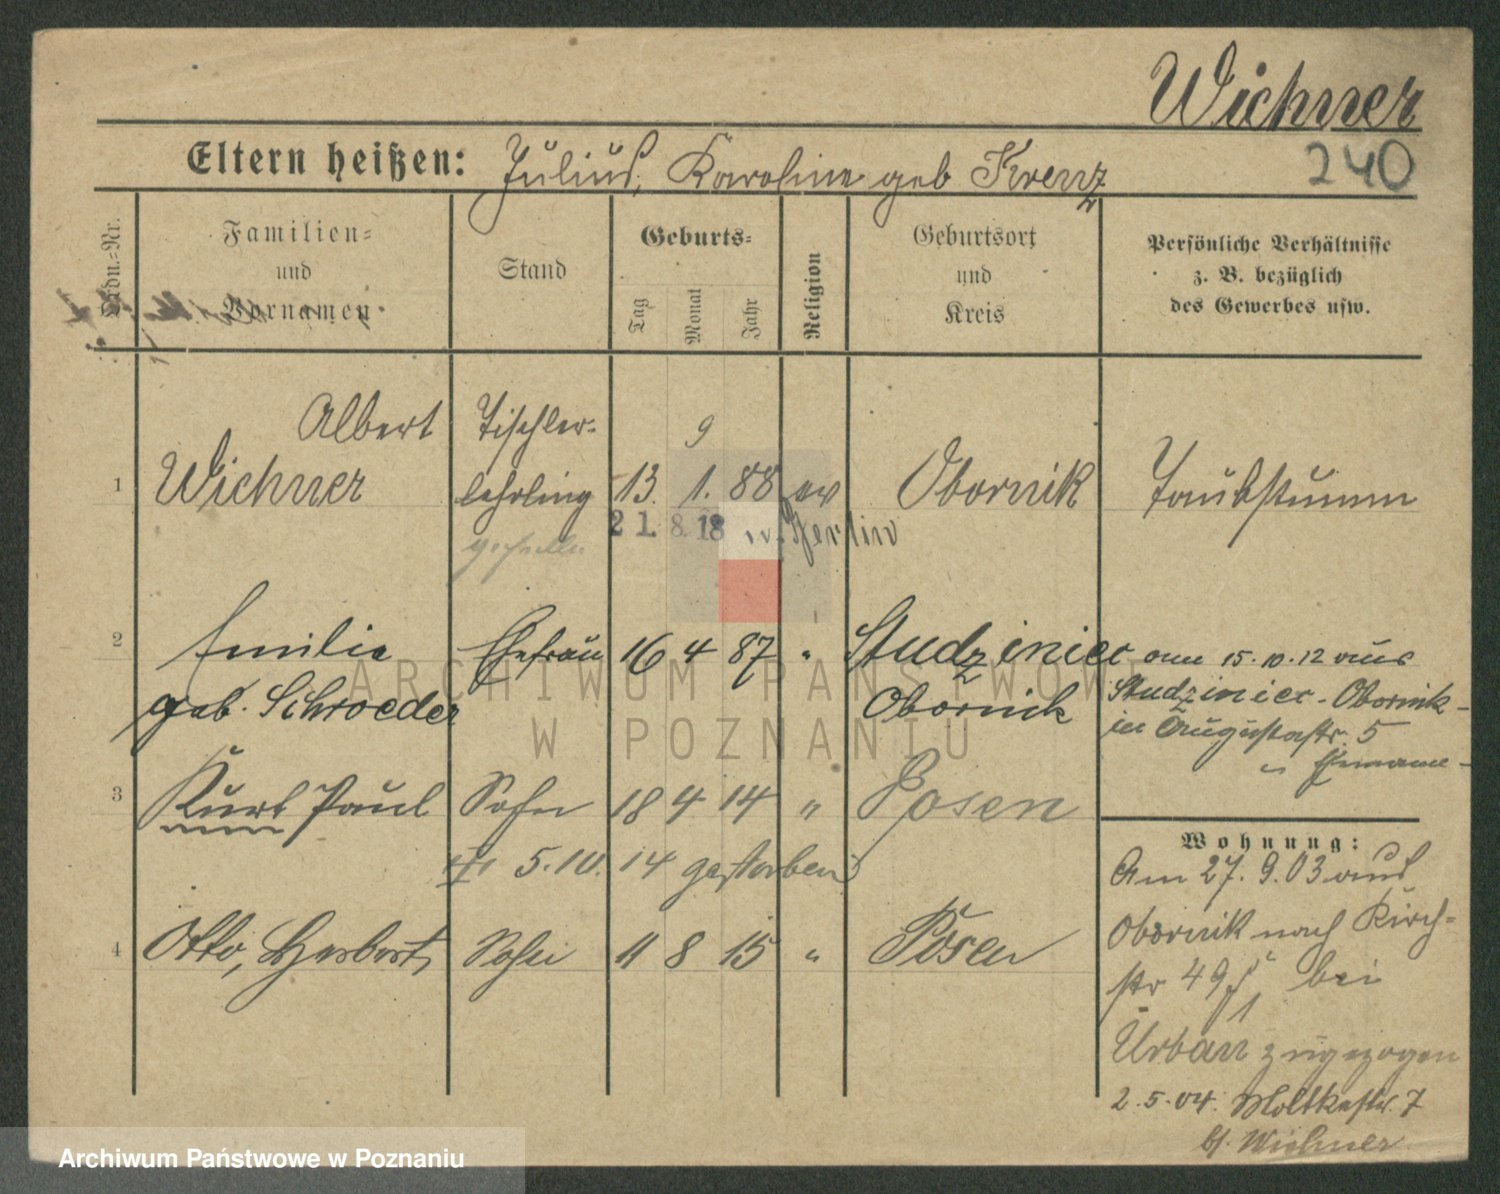 Wichner
Eltern heißen: Julius, Karoline geb Krenz
240
Ordn.-Nr.
Familien-
und
Vornamen
Stand
Geburts-
Tag
Monat
Jahr
Religion
Geburtsort
und
Kreis
Persönliche Verhältnisse
z. B. bezüglich
des Gewerbes usw.
Albert Tischler- 9
1 Wichner lehrling 13. 1. 88 ev Obornik Taubstumm
geselle 21. 8. 18 n. Berlin
2 Emilie Ehefrau 16 4 87 " Studziniec am 15.10.12 aus
geb. Schroeder Obornik Studziniec-Obornik
in Augustastr. 5
3 Kurt Paul Sohn 18 4 14 " Posen
5.10.14 gestorben
4 Otto, Herbert Sohn 11 8 15 " Posen
Wohnung:
Am 27.9.03 aus
Obornik nach Kirch-
str 49 bei
Urban zugezogen
2.5.04. Moltkestr. 7
b/. Wichner
ARCHIWUM PAŃSTWOWE
W POZNANIU
Archiwum Państwowe w Poznaniu